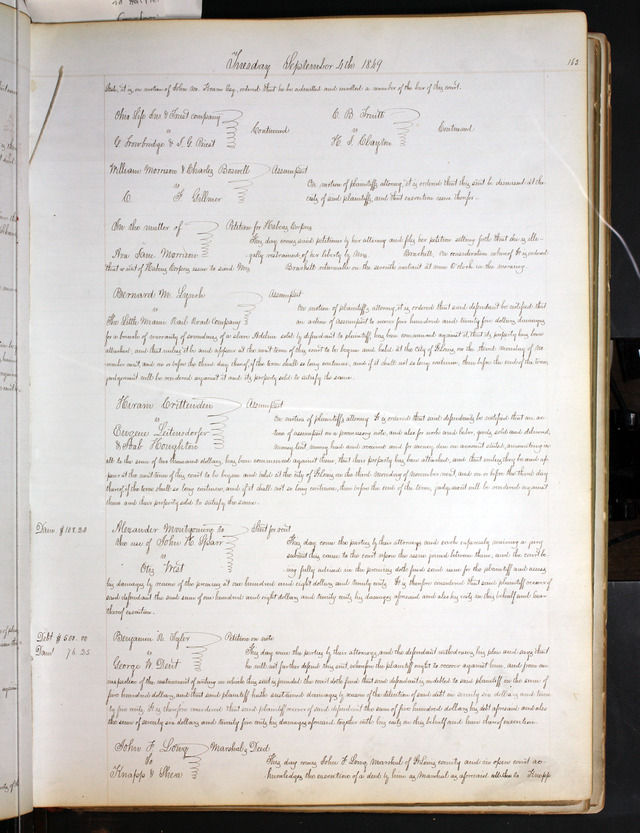 Tuesday September 4th 1849
163
State, it is, on motion of John M. Esqr, ordered that he be admitted and enrolled a member of the bar of this court.
Ohio Life Ins & Trust company
vs
G Trowbridge & S. G. Priest
Continued
C. B. Truitt
vs
H. S. Clayton
Continued
William Morrison & Charles Boswell
vs
C. F. Gillmer
Assumpsit
On motion of plaintiffs attorney, it is ordered that this suit be dismissed at the
costs of said plaintiffs, and that execution issue therefor.
In the matter of
Ara Jane Morrison
Petition for Habeas Corpus
This day comes said petitioner by her attorney and files her petition setting forth that she is ille-
gally restrained of her liberty by Mrs. Brackett. On consideration whereof It is ordered
that a writ of Habeas Corpus issue to said Mrs Brackett returnable on the seventh instant at nine O'clock in the morning.
Bernard M. Lynch
vs
The Little Miami Rail Road Company
Assumpsit
On motion of plaintiffs attorney, it is ordered that said defendant be notified that
an action of assumpsit to recover five hundred and twenty five dollars, damages
for a breach of warranty of soundness of a slave Adeline sold by defendant to plaintiff, has been commenced against it, that its property has been
attached, and that unless it be and appear at the next term of this court to be begun and held at the City of St Louis, on the third Monday of No-
vember next, and on or before the third day thereof, if the term shall so long continue, and if it shall not so long continue, then before the end of the term,
judgement will be rendered against it and its property sold to satisfy the same.
Hiram Crittenden
vs
Eugene Leitensdorfer
& Stab Houghton
Assumpsit
On motion of plaintiffs attorney It is ordered that said defendants be notified that an ac-
tion of assumpsit on a promissory note, and also for work and labor, goods sold and delivered,
money lent, money had and received and for money due on account stated, amounting in
all to the sum of two thousand dollars, has been commenced against them, that their property has been attached, and that unless they be and ap-
pear at the next term of this court to be begun and held at the city of St Louis on the third Monday of November next, and on or before the third day
thereof, if the term shall so long continue, and if it shall not so long continue, then before the end of the term, judgement will be rendered against
them and their property sold to satisfy the same.
Dam $108.20
Alexander Montgomery to
the use of John H. Sparr
vs
Otis West
Suit for rent.
This day come the parties by their attorneys, and each expressly waiving a jury
submit this cause to the court upon the issue joined between them, and the court be-
ing fully advised in the premises doth find said issue for the plaintiff and assess
his damages by reason of the premises at one hundred and eight dollars and twenty cents. It is therefore considered that said plaintiff recover of
said defendant the said sum of one hundred and eight dollars and twenty cents his damages aforesaid and also his costs in this behalf and have
thereof execution.
Debt $500.00
Dam 76.25
Benjamin N. Tyler
vs
George W. Dent
Petition on note
This day come the parties by their attorneys, and the defendant withdraws his plea and says that
he will not further defend this suit, wherefore the plaintiff ought to recover against him, and from an
inspection of the instrument of writing on which this suit is founded the court doth find that said defendant is indebted to said plaintiff in the sum of
five hundred dollars, and that said plaintiff hath sustained damages by reason of the detention of said debt in seventy six dollars and twen-
ty five cents. It is therefore considered that said plaintiff recover of said defendant the sum of five hundred dollars his debt aforesaid and also
the sum of seventy six dollars and twenty five cents his damages aforesaid together with his costs in this behalf and have thereof execution.
John F. Long
to
Knapp & Shea
Marshals Deed
This day comes John F. Long, Marshal of St Louis county, and in open court ac-
knowledges the execution of a deed by him as Marshal as aforesaid to Knapp